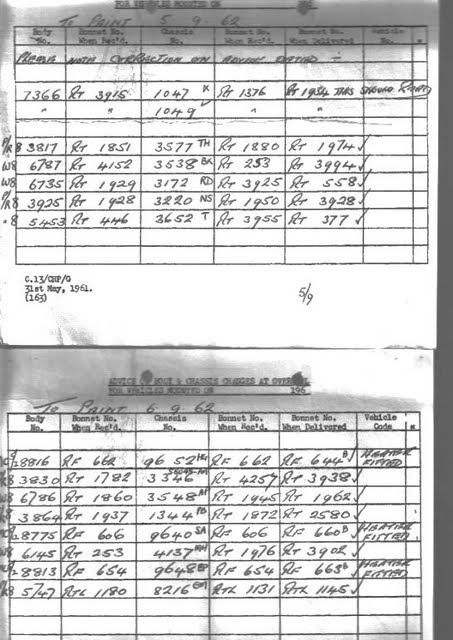 FOR VEHICLES MOUNTED ON 196
To PAINT 5 . 9 . 62
Body No. Bonnet No. When Rec'd. Chassis No. Bonnet No. When Rec'd. Bonnet No. When Delivered Vehicle No. *
PLEASE NOTE CORRECTION ON ADVICE DATED :-
7366 RT 3915 1047 x RT 1376 RT 1934 THIS SHOULD READ
" " 1049 ✓
P/R8 3817 RT 1851 3577 TH RT 1880 RT 1974 ✓
W8 6787 RT 4152 3538 BK RT 253 RT 3994 ✓
W8 6735 RT 1929 3172 RD RT 3925 RT 558 ✓
P/R8 3925 RT 1928 3220 NS RT 1950 RT 3928 ✓
" 8 5453 RT 446 3652 T RT 3955 RT 377 ✓
C.13/CHP/G
31st May, 1961.
(163)
5/9
ADVICE OF BODY & CHASSIS CHANGES AT OVERHAUL
FOR VEHICLES MOUNTED ON 196
To PAINT 6 . 9 . 62
Body No. Bonnet No. When Rec'd. Chassis No. Bonnet No. When Rec'd. Bonnet No. When Delivered Vehicle Code *
8816 RF 662 9652 RF 662 RF 644 B ✓ HEATER FITTED
3830 RT 1782 3346 RT 4257 RT 3938 ✓
W8 6786 RT 1860 3548 AF RT 1945 RT 1962 ✓
3864 RT 1937 1344 PB RT 1872 RT 2580 ✓
8775 RF 606 9640 SA RF 606 RF 660 B ✓ HEATER FITTED
W8 6145 RT 253 4137 RT 1976 RT 3902 ✓
8813 RF 654 9648 RF 654 RF 665 B ✓ HEATER FITTED
R8 5147 RTL 1180 8216 RTL 1131 RTL 1145 ✓